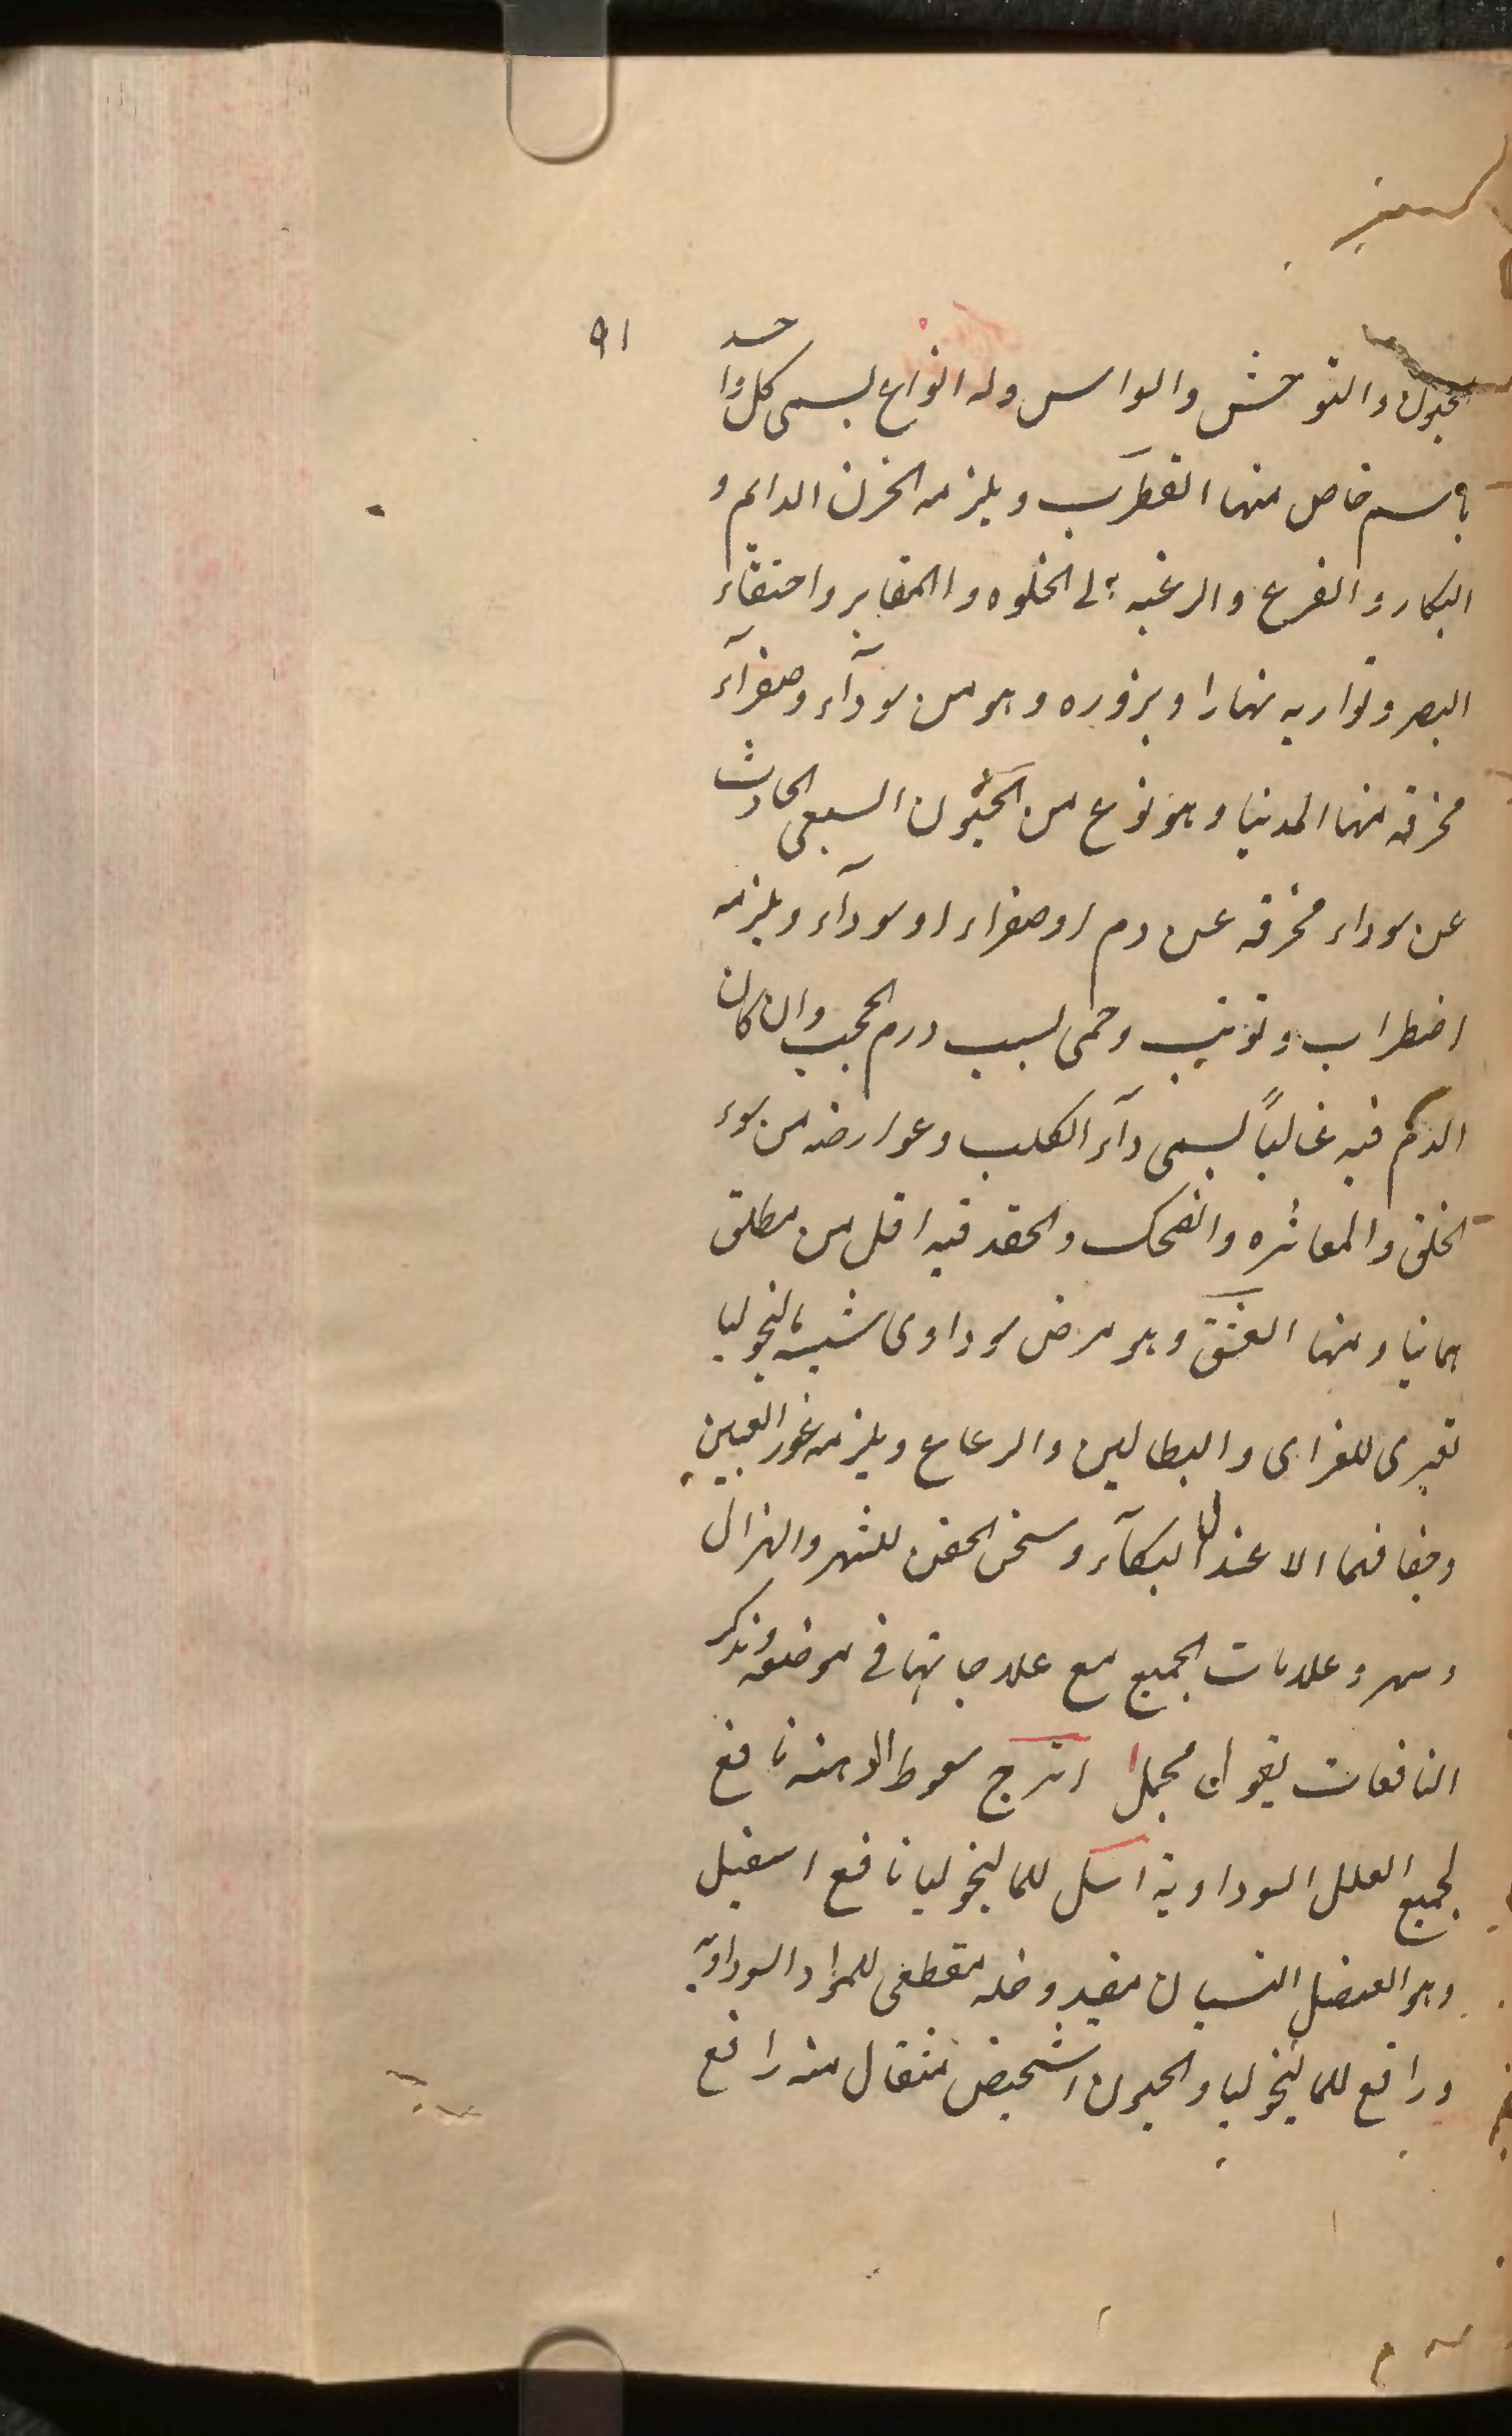 ٩١
الجنون والتوحش والواس وله انواع يسمى كل واحد
باسم خاص منها القطرب ويلزمه الحزن الدايم و
البكاء والفزع والرغبه الى الخلوه والمقابر واختفاء
البصر وتواريه نهارا وبزوره وهو من سودآء وصفرآء
محرقه منها المدنيا وهو نوع من الجنون السبعى الحادث
عن سوداء محرقه عن دم او صفراء او سودآء ويلزمه
اضطراب وتوثب وحمى لسبب ورم الحجب وان كان
الدم فيه غالباً يسمى دآء الكلب وعوارضه من سوء
الخلق والمعاشره والضحك والحقد فيه اقل من مطلق
مانيا ومنها العشق وهو مرض سوداوى شبيه بالنجوليا
تعترى للعزاى والبطالين والرعاع ويلزمه غور العينين
وجفافهما الا عند البكآء وسخن الجفن للسهر والهزال
وسهر وعلامات الجميع مع علاجاتها فى موضعه ونذكر
النافعات بقول مجملا اترج سعوط الدهنه نافع
لجميع العلل السوداوية اسل للمالنجوليا نافع اسقيل
وهو العنصل النسيان مفيد وخله مقطعى للمواد السوداويه
ورافع للمالنجوليا والجنون اشخيص مثقال منه رافع